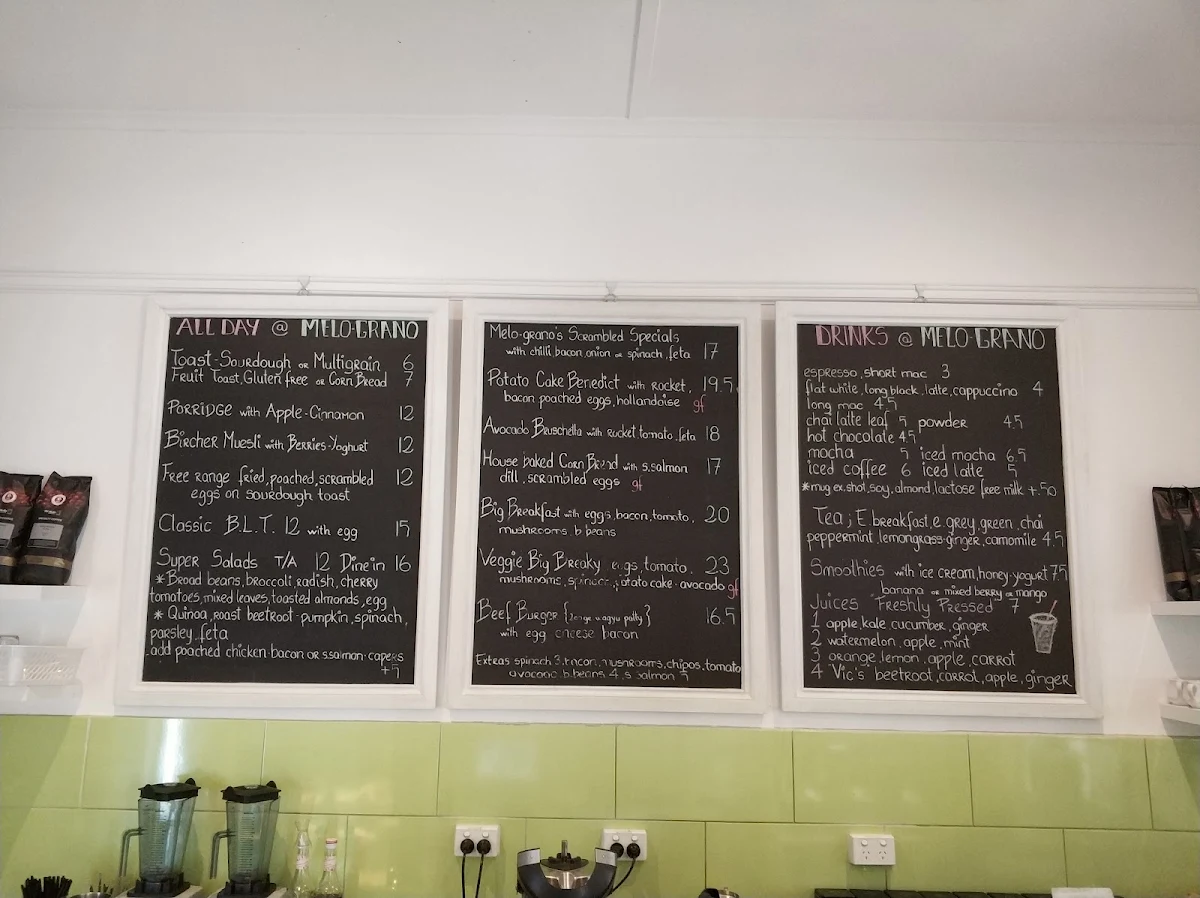 ALL DAY @ MELO-GRANO
Toast-Sourdough or Multigrain 6
Fruit Toast, Gluten free or Corn Bread 7
PORRIDGE with Apple-Cinnamon 12
Bircher Muesli with Berries-Yoghurt 12
Free range fried, poached, scrambled 12
eggs on sourdough toast
Classic B.L.T. 12 with egg 15
Super Salads T/A 12 Dine in 16
*Broad beans, broccoli, radish, cherry
tomatoes, mixed leaves, toasted almonds, egg
* Quinoa, roast beetroot-pumpkin, spinach,
parsley, feta
add poached chicken-bacon or s.salmon-capers
+5
Melo-grano's Scrambled Specials
with chilli, bacon, onion or spinach, feta 17
Potato Cake Benedict with rocket, 19.5
bacon poached eggs, hollandoise gf
Avocado Bruschetta with rocket, tomato, feta 18
House baked Corn Bread with s.salmon 17
dill, scrambled eggs gf
Big Breakfast with eggs, bacon, tomato, 20
mushrooms, b beans
Veggie Big Breaky eggs, tomato, 23
mushrooms, spinach, potato cake-avocado gf
Beef Burger { wagyu patty} 16.5
with egg cheese bacon
Extras spinach 3, bacon, mushrooms, chipos, tomato
avocado, b.beans 4, s salmon 5
DRINKS @ MELO-GRANO
espresso, short mac 3
flat white, long black, latte, cappuccino 4
long mac 4.5
chai latte leaf 5 powder 4.5
hot chocolate 4.5
mocha 5 iced mocha 6.5
iced coffee 6 iced latte 5
*mug ex.shot, soy, almond, lactose free milk +.50
Tea; E breakfast, e. grey, green, chai
peppermint, lemongrass-ginger, camomile 4.5
Smoothies with ice cream, honey-yogurt 7.5
banana or mixed berry or mango
Juices "Freshly Pressed" 7
1 apple, kale, cucumber, ginger
2 watermelon, apple, mint
3 orange, lemon, apple, carrot
4 "Vic's" beetroot, carrot, apple, ginger